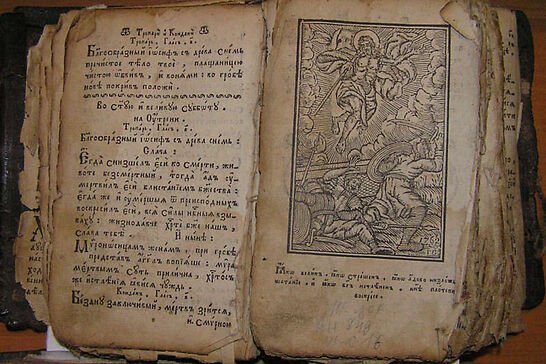 Тропари и Кондаки
Тропарь, Гласъ, в҃.
Бл҃гоѻбразный іѡсифъ съ древа снемъ
пречистое тѣло твое, плащаницею
чистою ѡбвивъ, и вонѧми во гробѣ
новѣ покривъ положи.
Во ст҃ую и великую Суббѡту.
на Оутрени.
Тропарь, Гласъ, в҃.
Бл҃гоѻбразный іѡсифъ съ древа снемъ:
Слава:
Егда снизшелъ еси ко смерти, жи-
воте безсмертный, тогда адъ у-
мертвилъ еси блистаніемъ бж҃ества:
егда же и умершыѧ ѿ преисподныхъ
воскресилъ еси, всѧ силы нб҃ныѧ взы-
ваху: жизнодавче хр҃те бж҃е нашъ,
Слава тебѣ.
И нынѣ:
Мѵроносицамъ женамъ, при гробѣ
представъ аг҃глъ вопіѧше: мѵра
мертвымъ суть прилична, хр҃тосъ
же истлѣніѧ ꙗвисѧ чуждь.
Кондакъ, Гласъ,
Бездну заключивый, мертвъ зритсѧ,
и Смѵрною
воскресе.